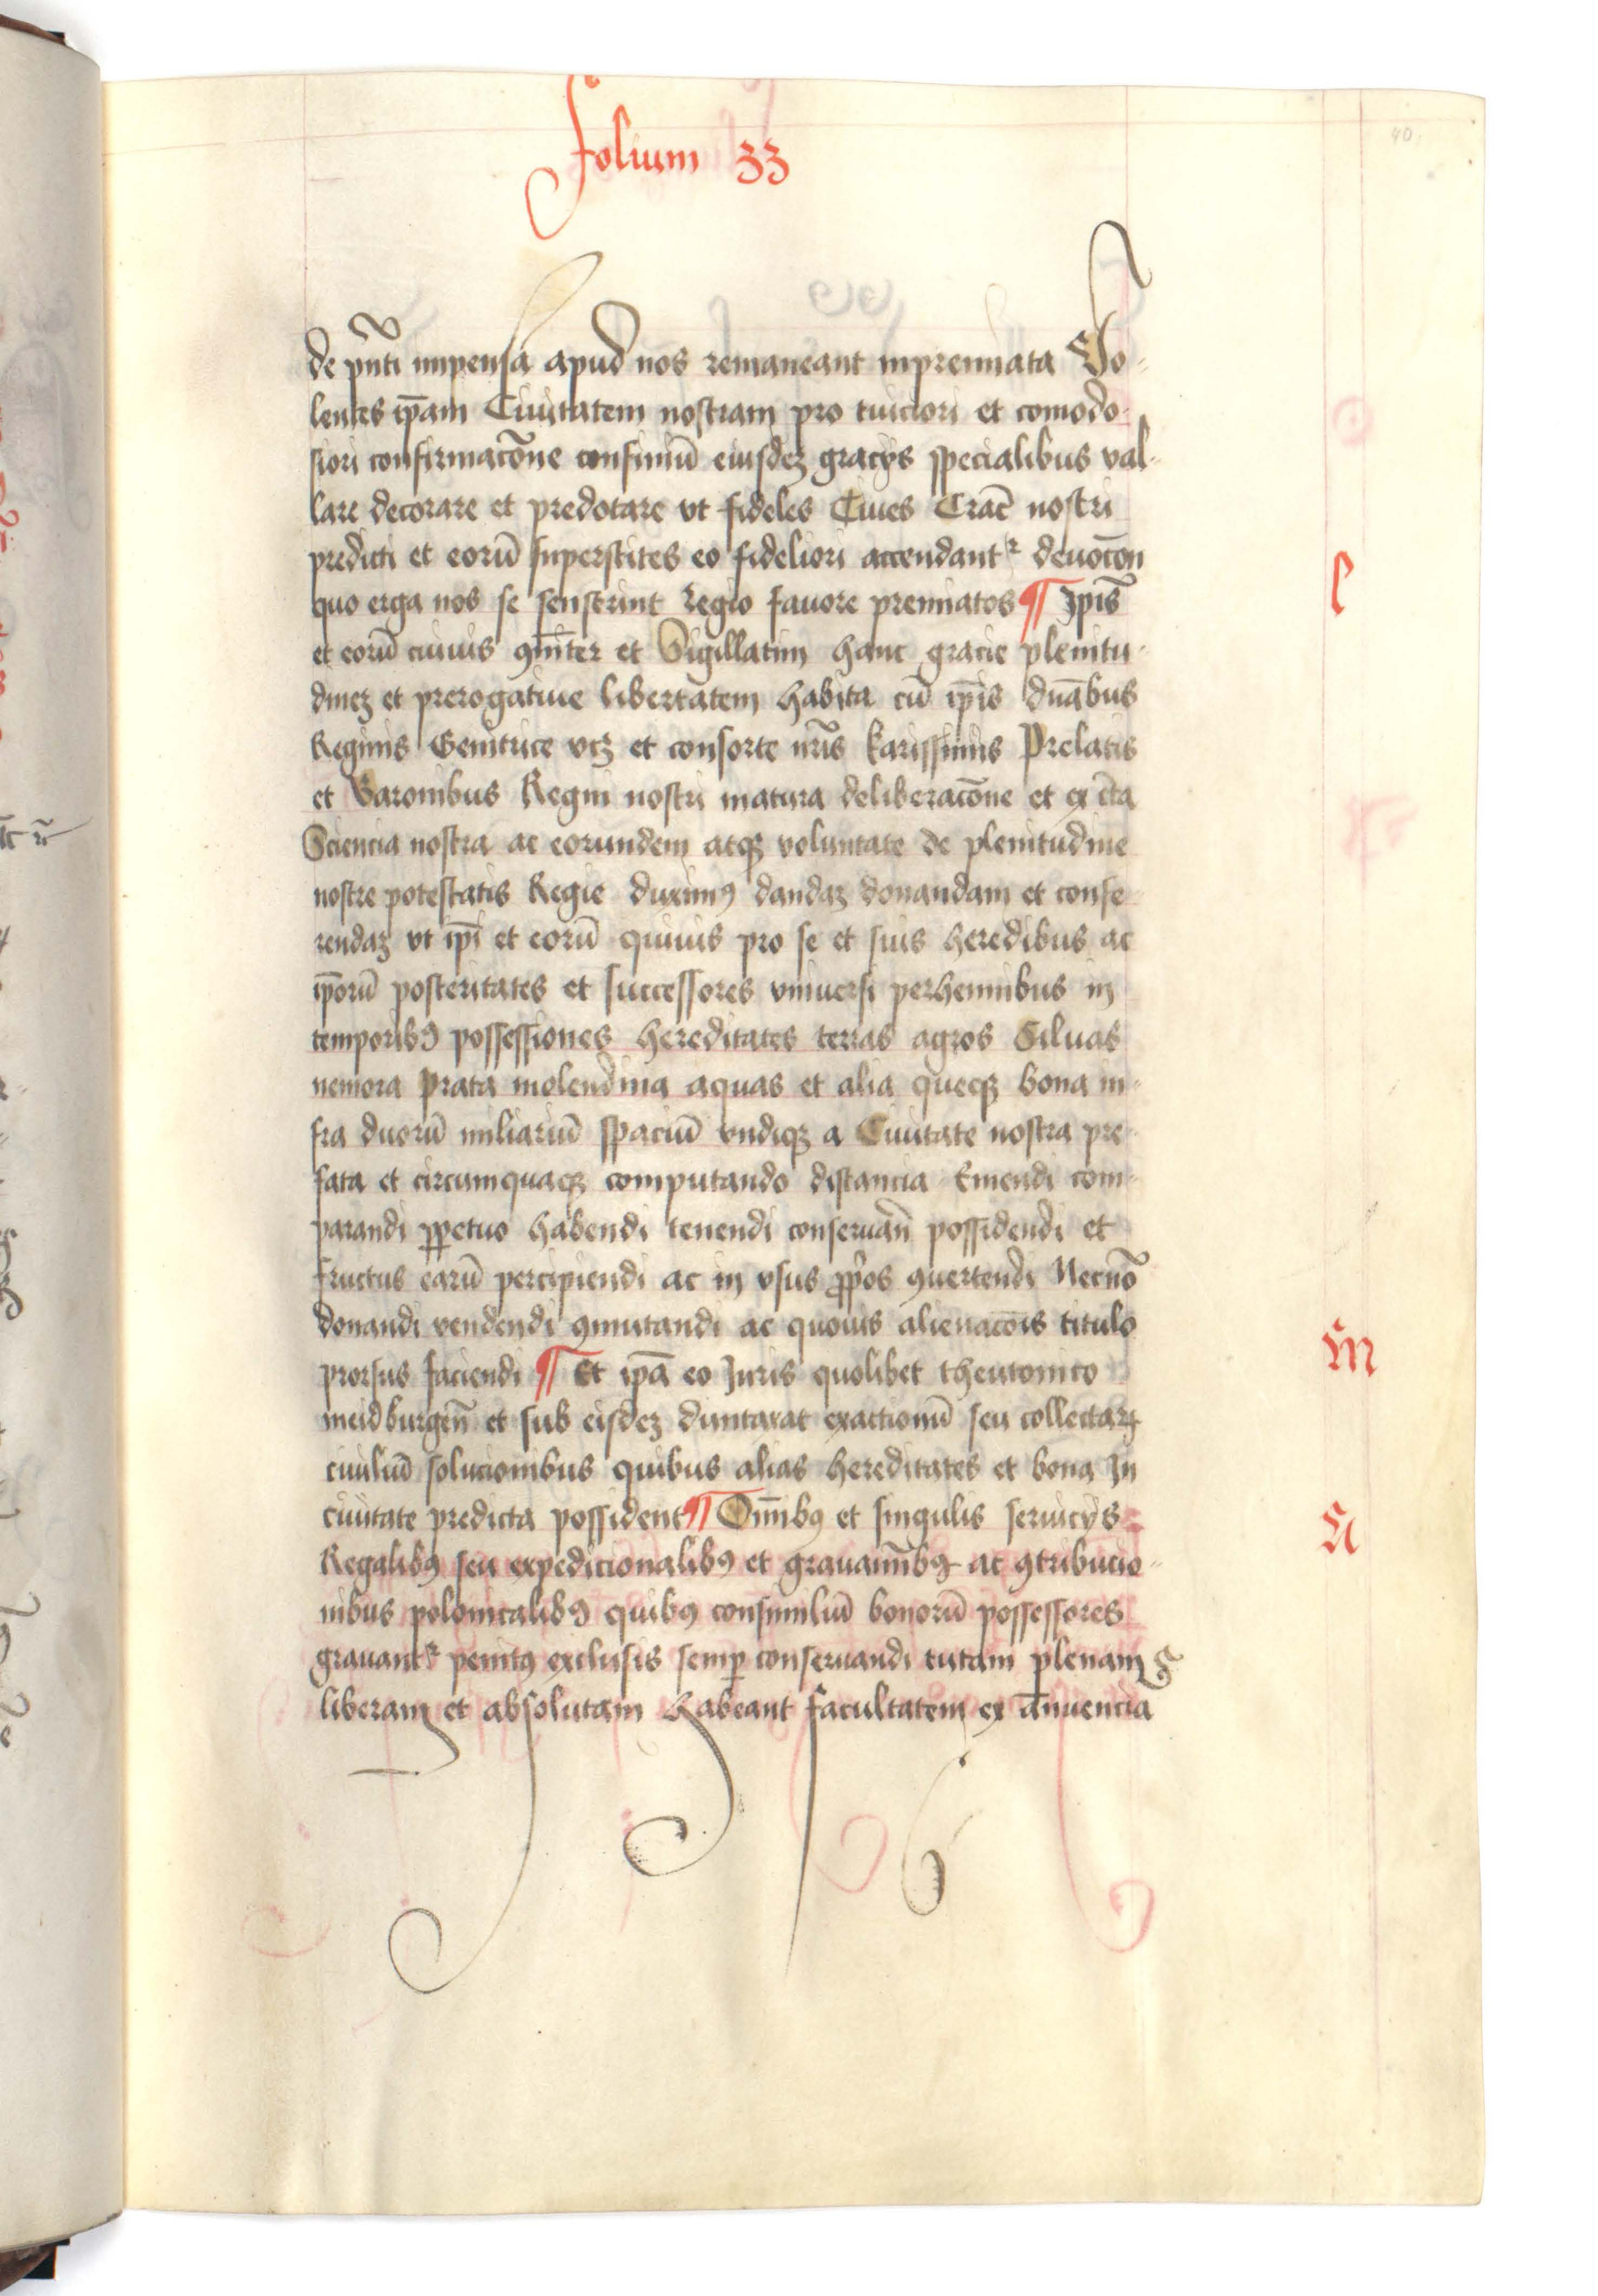 Folium 33
40
de pñti impensa apud nos remaneant inpremiata Vo-
lentes ip̄am Ciuitatem nostram pro tuiciori et comodo-
siori confirmacōne confiniū eiusdeʒ gracijs specialibus val-
lare decorare et predotare vt fideles Ciues Crac̄ nostri
predicti et eorū superstites eo fideliori accendantʳ deuocōn
quo erga nos se senserint regio fauore premiatos ¶ Ipīs
et eorū cuiuis ꝯmīter et Sigillatim hanc gracie plenitu-
dineʒ et prerogatiue libertatem habita cū ip̄is duābus
Reginis Genitrice vcʒ et consorte nr̄is karissimis Prelatis
et Baronibus Regni nostri matura deliberacōne et ex c̄ta
Sciencia nostra ac eorundem atqʒ voluntate de plenitudine
nostre potestatis Regie duximꝰ dandaʒ donandam et confe
rendaʒ vt ip̄i et eorū quiuis pro se et suis heredibus ac
ip̄orū posteritates et successores vniuersi perhennibus in
temporibꝰ possessiones hereditates terras agros Siluas
nemora prata molendina aquas et alia quecqʒ bona in-
fra duorū miliariū spaciū vndiqʒ a Ciuitate nostra pre-
fata et circumquaqʒ computando distancia Emendi com-
parandi ꝑpetuo habendi tenendi conseruan̄ possidendi et
fructus earū percipiendi ac in vsus ꝓp̄os ꝯuertendi Necnō
donandi vendendi ꝯmutandi ac quouis alienacōis titulo
prorsus faciendi ¶ Et ip̄a eo Iuris quolibet theutonico
meidburgen̄ et sub eisdeʒ duntaxat exactionū seu collectaꝝ
ciuiliū solucionibus quibus alias hereditates et bona In
ciuitate predicta possident ¶ Om̄ibꝰ et singulis seruicijs
Regalibꝰ seu expedicionalibꝰ et grauamībꝰ ac ꝯtribucio-
nibus polonicalibꝰ quibꝰ consimiliū bonorū possessores
grauantʳ penitꝰ exclusis semꝑ conseruandi tutam plenam
liberam et absolutam habeant facultatem ex ānuencia
l
M
N